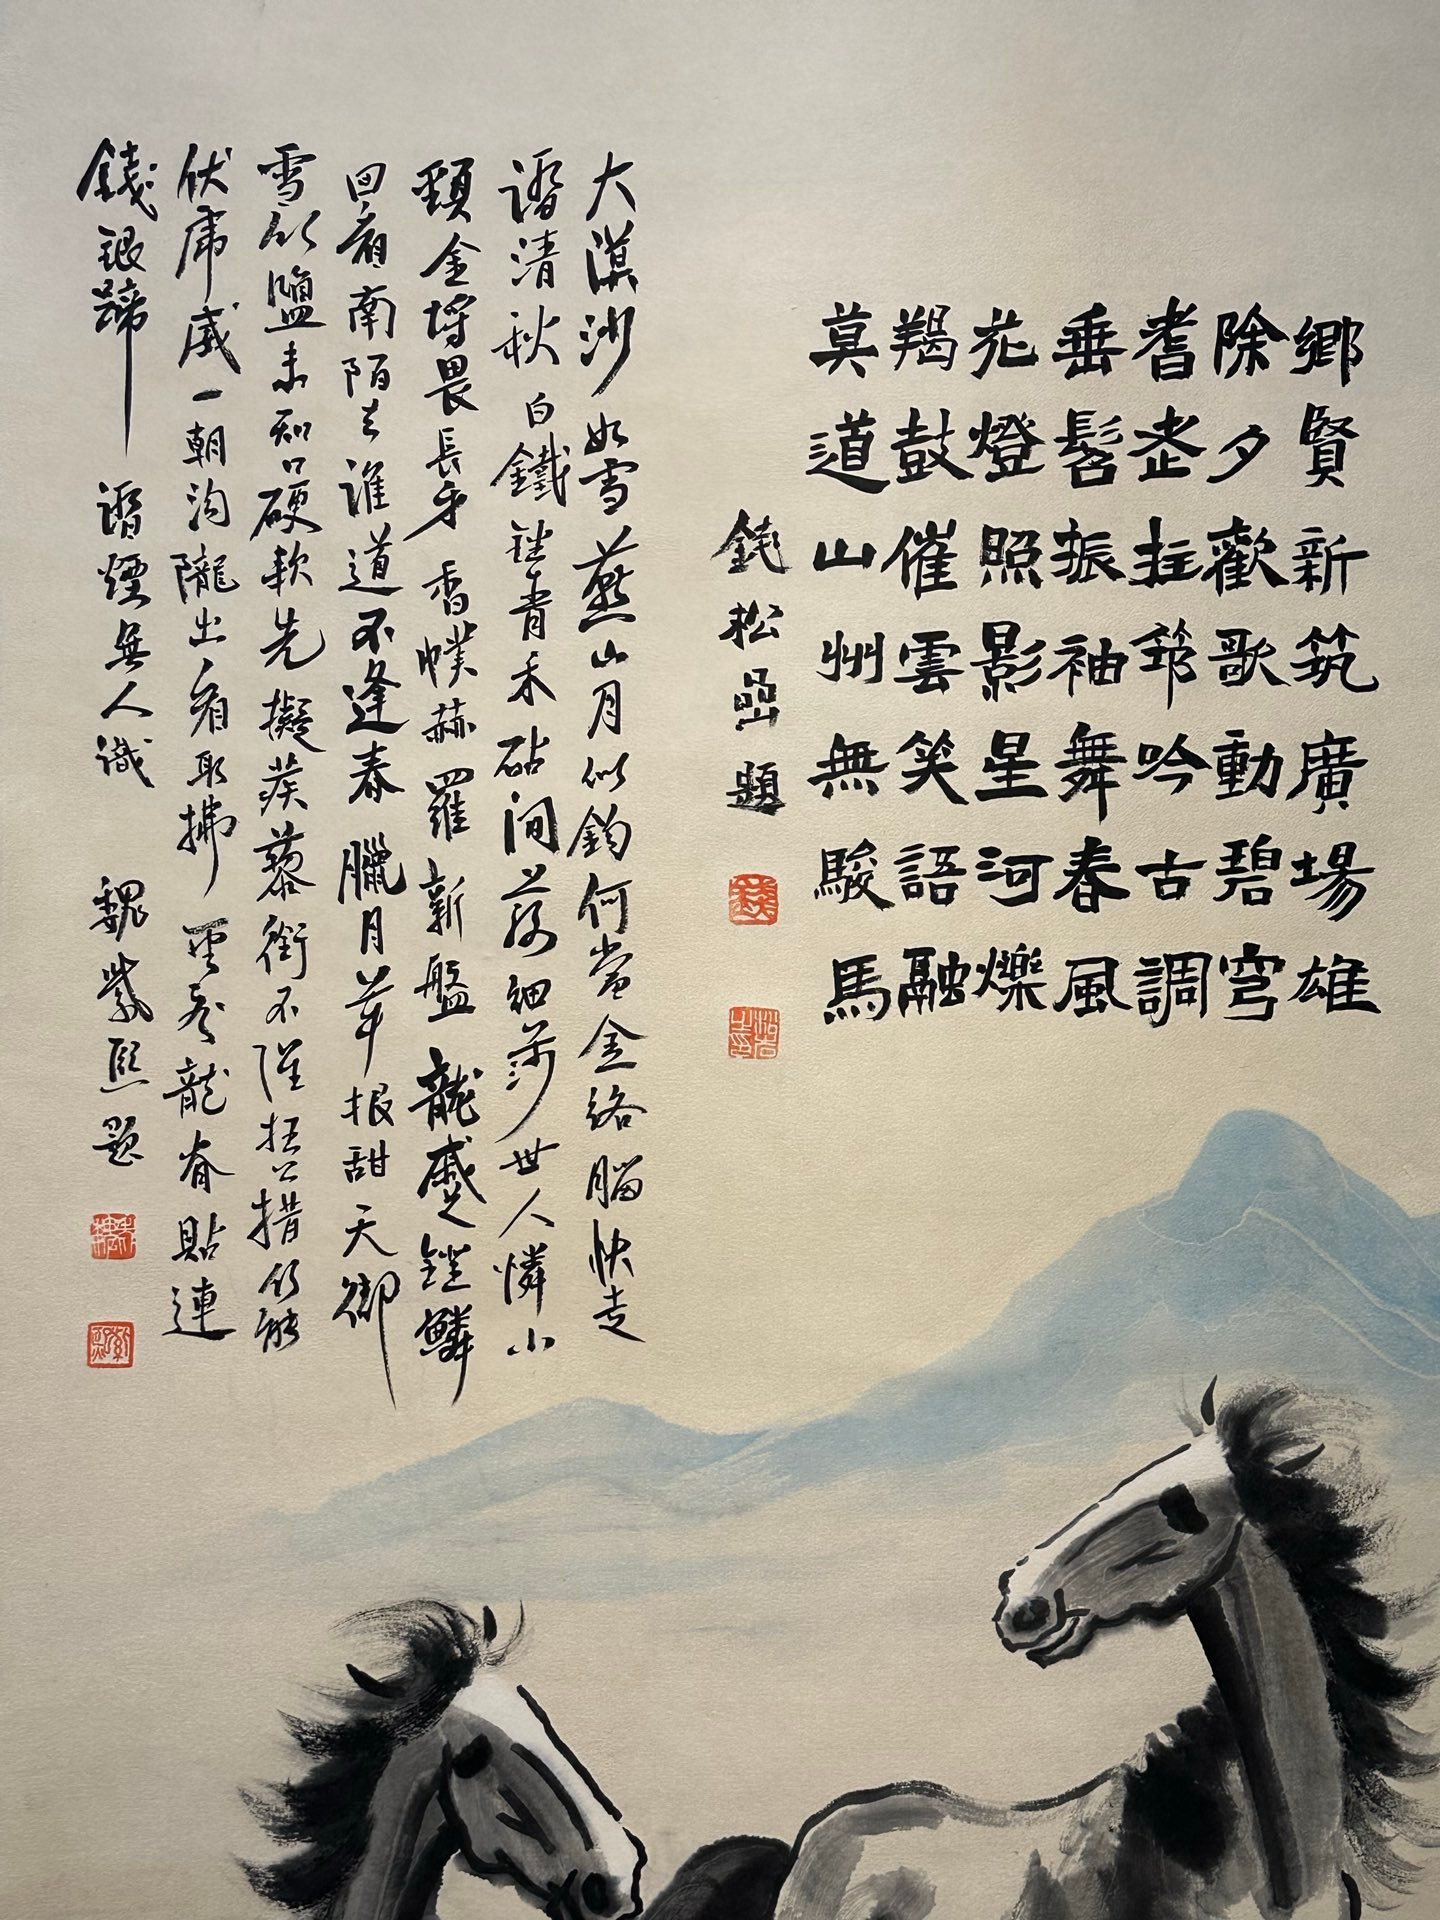 鄉賢新筑廣場雄
除夕歡歌動碧穹
耆老拄筇吟古調
垂髫振袖舞春風
花燈照影星河爍
羯鼓催雲笑語融
莫道山州無駿馬
錢松嵒題
大漠沙如雪燕山月似鉤何當金絡腦快走
踏清秋 白鐵銼青禾砧間落細莎世人憐小
頸金埒畏長牙 香幞赫羅新盤龍蹙鐙鱗
回看南陌上誰道不逢春 臘月草根甜天街
雪似鹽未知口硬軟先擬蒺藜銜 不從桓公獵何能
伏虎威一朝溝隴出看取拂雲飛 龍脊貼連
錢銀蹄白踏煙無人織 魏紫熙題